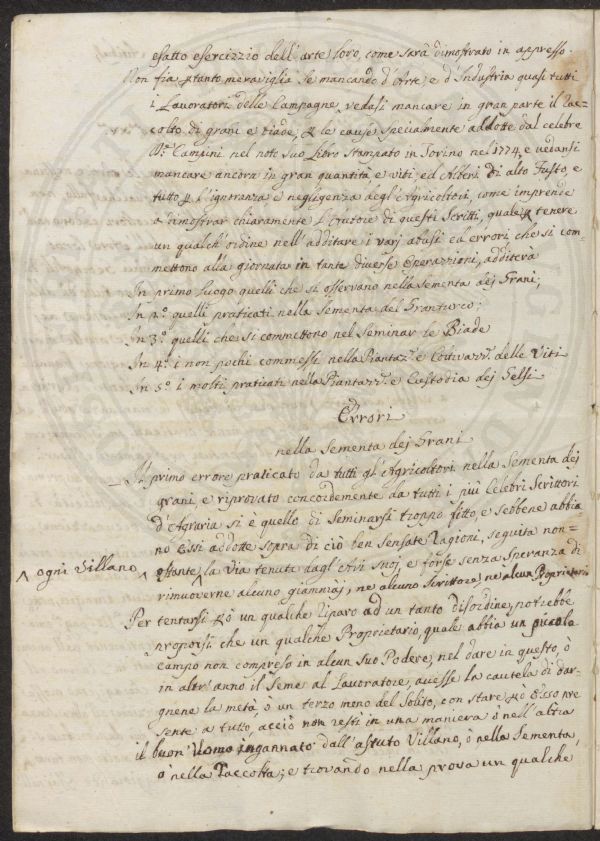 esatto esercizzio dell'arte loro, come sarà dimostrato in appresso.
Non fia ꝑtanto meraviglia se mancando d'Arte, e d'Industria quasi tutti
i Lavoratori delle Campagne, vedasi mancare in gran parte il rac=
colto di grani e biade, ꝑ le cause specialmente addotte dal celebre
Campini nel noto suo libro stampato in Torino nel 1774, e vedansi
mancare ancora in gran quantità e viti, ed Alberi di alto fusto, e
tutto ꝑ l'ignoranza e negligenza degl'Agricoltori, come imprende
a dimostrar chiaramente l'Autore di questi Scritti, quale ꝑ tenere
un qualch'ordine nell'additare i varj abusi ed errori, che si com=
mettono alla giornata in tante diverse Operazzioni, additerà
In primo luogo quelli che si osservano nella Sementa dej Grani;
In 2.º quelli praticati nella Sementa del Granturco;
In 3.º quelli che si commettono nel Seminar le Biade
In 4.º i non pochi commessi nella Piantaz.ᵉ e Coltivazz.ᵉ delle Viti
In 5.º i molti praticati nella Piantazz.ᵉ e Custodia dej Gelsi
Errori
nella Sementa dej Grani
Il primo errore praticato da tutti gl'Agricoltori nella Sementa dej
grani, e riprovato concordemente da tutti i più Celebri Scrittori
d'Agraria si è quello di Seminarsi troppo fitto, e sebbene abbia
no Essi addotte sopra di ciò ben sensate Ragioni, seguita non=
^ ogni villano ^ ostante la via tenuta dagl'Avi suoj, e forse senza speranza di
rimuoverne alcuno giammaj, ne alcuno Scrittore, ne alcun Proprietario
Per tentarsi ꝑò un qualche riparo ad un tanto disordine, potrebbe
proporsi che un qualche Proprietario, quale abbia un piccolo
campo non compreso in alcun suo Podere, nel dare in questo, ò
in altr'anno il seme al Lavoratore, avesse la cautela di dar=
gnene la metà, ò un terzo meno del solito, con stare ꝑò Esso pre
sente a tutto, acciò non resti in una maniera ò nell'altra
il buon'Uomo ingannato dall'astuto Villano, ò nella Sementa,
ò nella Raccolta; e trovando nella prova un qualche